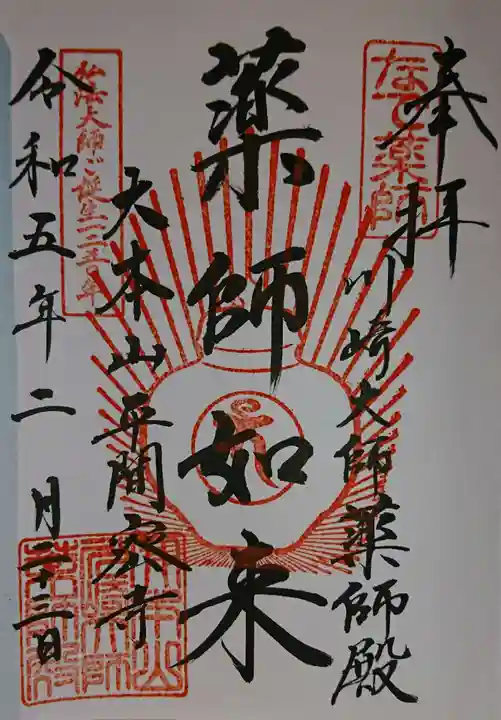 奉拝
なで薬師
川崎大師薬師殿
薬師如来
大本山平間寺
弘法大師ご誕生一二五〇年
令和五年二月二十三日